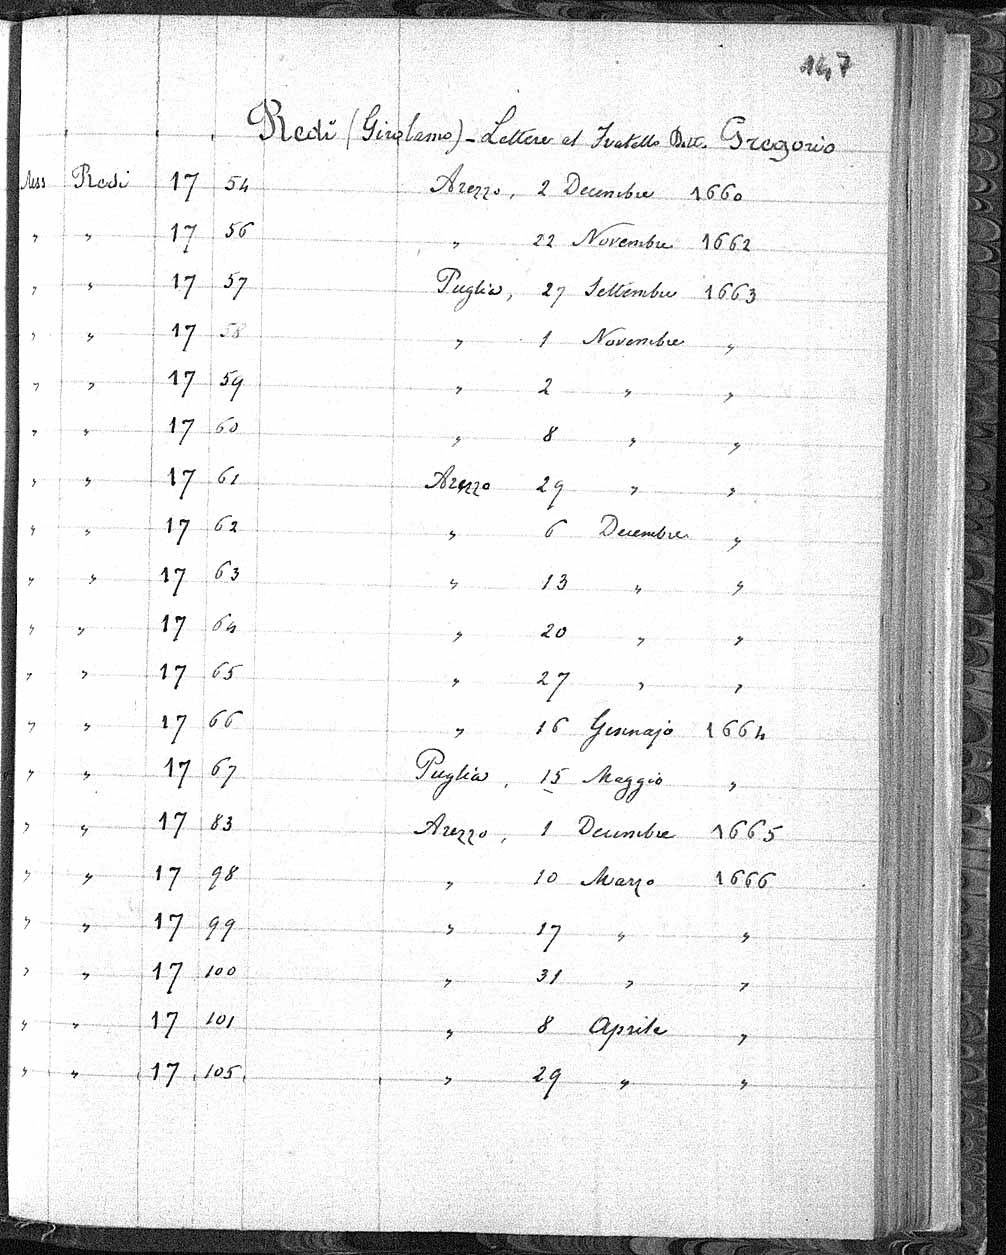 147
Redi (Girolamo) - Lettere al Fratello Dott. Gregorio
Mss Redi 17 54 Arezzo, 2 Decembre 1660
" " 17 56 " 22 Novembre 1662
" " 17 57 Puglia, 27 Settembre 1663
" " 17 58 " 1 Novembre "
" " 17 59 " 2 " "
" " 17 60 " 8 " "
" " 17 61 Arezzo 29 " "
" " 17 62 " 6 Decembre "
" " 17 63 " 13 " "
" " 17 64 " 20 " "
" " 17 65 " 27 " "
" " 17 66 " 16 Gennajo 1664
" " 17 67 Puglia, 15 Maggio "
" " 17 83 Arezzo, 1 Decembre 1665
" " 17 98 " 10 Marzo 1666
" " 17 99 " 17 " "
" " 17 100 " 31 " "
" " 17 101 " 8 Aprile "
" " 17 105 " 29 " "